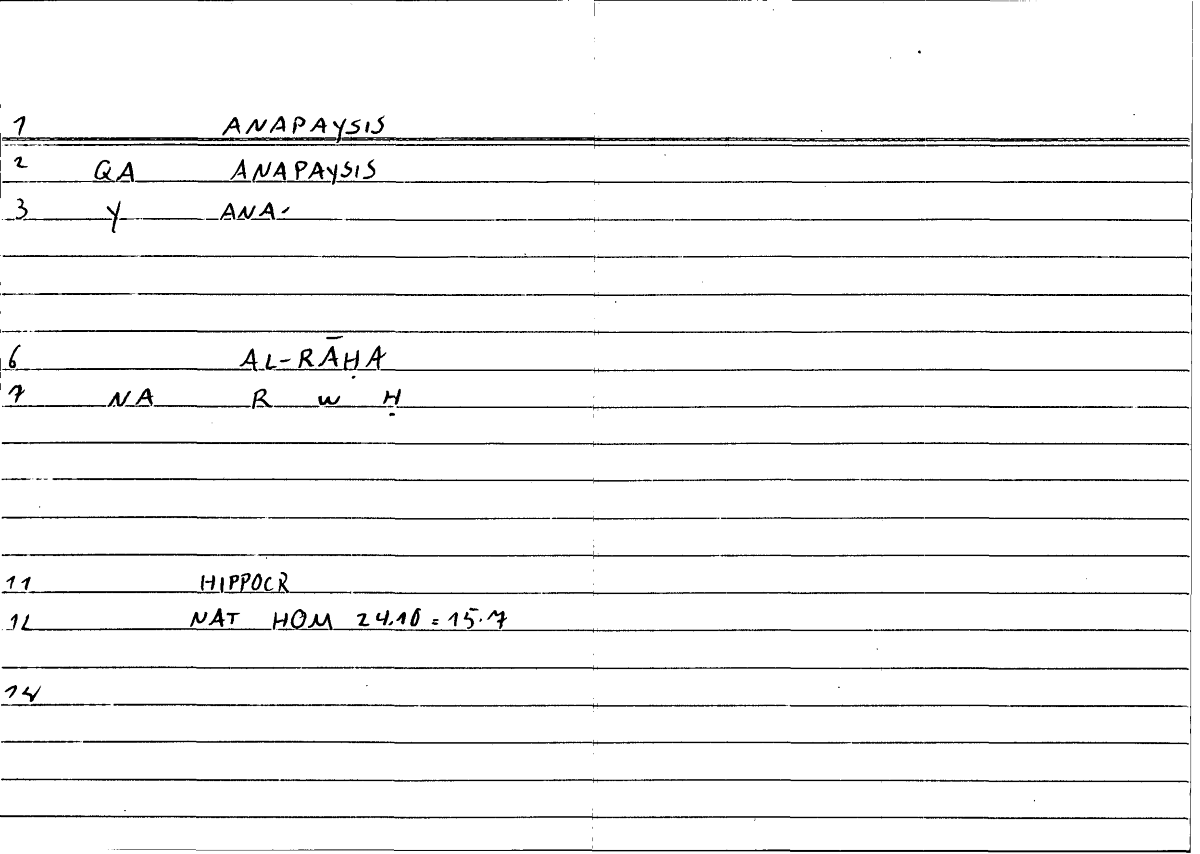 1 ANAPAYSIS
2 QA ANAPAYSIS
3 Y ANA-
6 AL-RĀḤA
7 NA R W Ḥ
11 HIPPOCR
12 NAT HOM 24.10 = 15.7
14